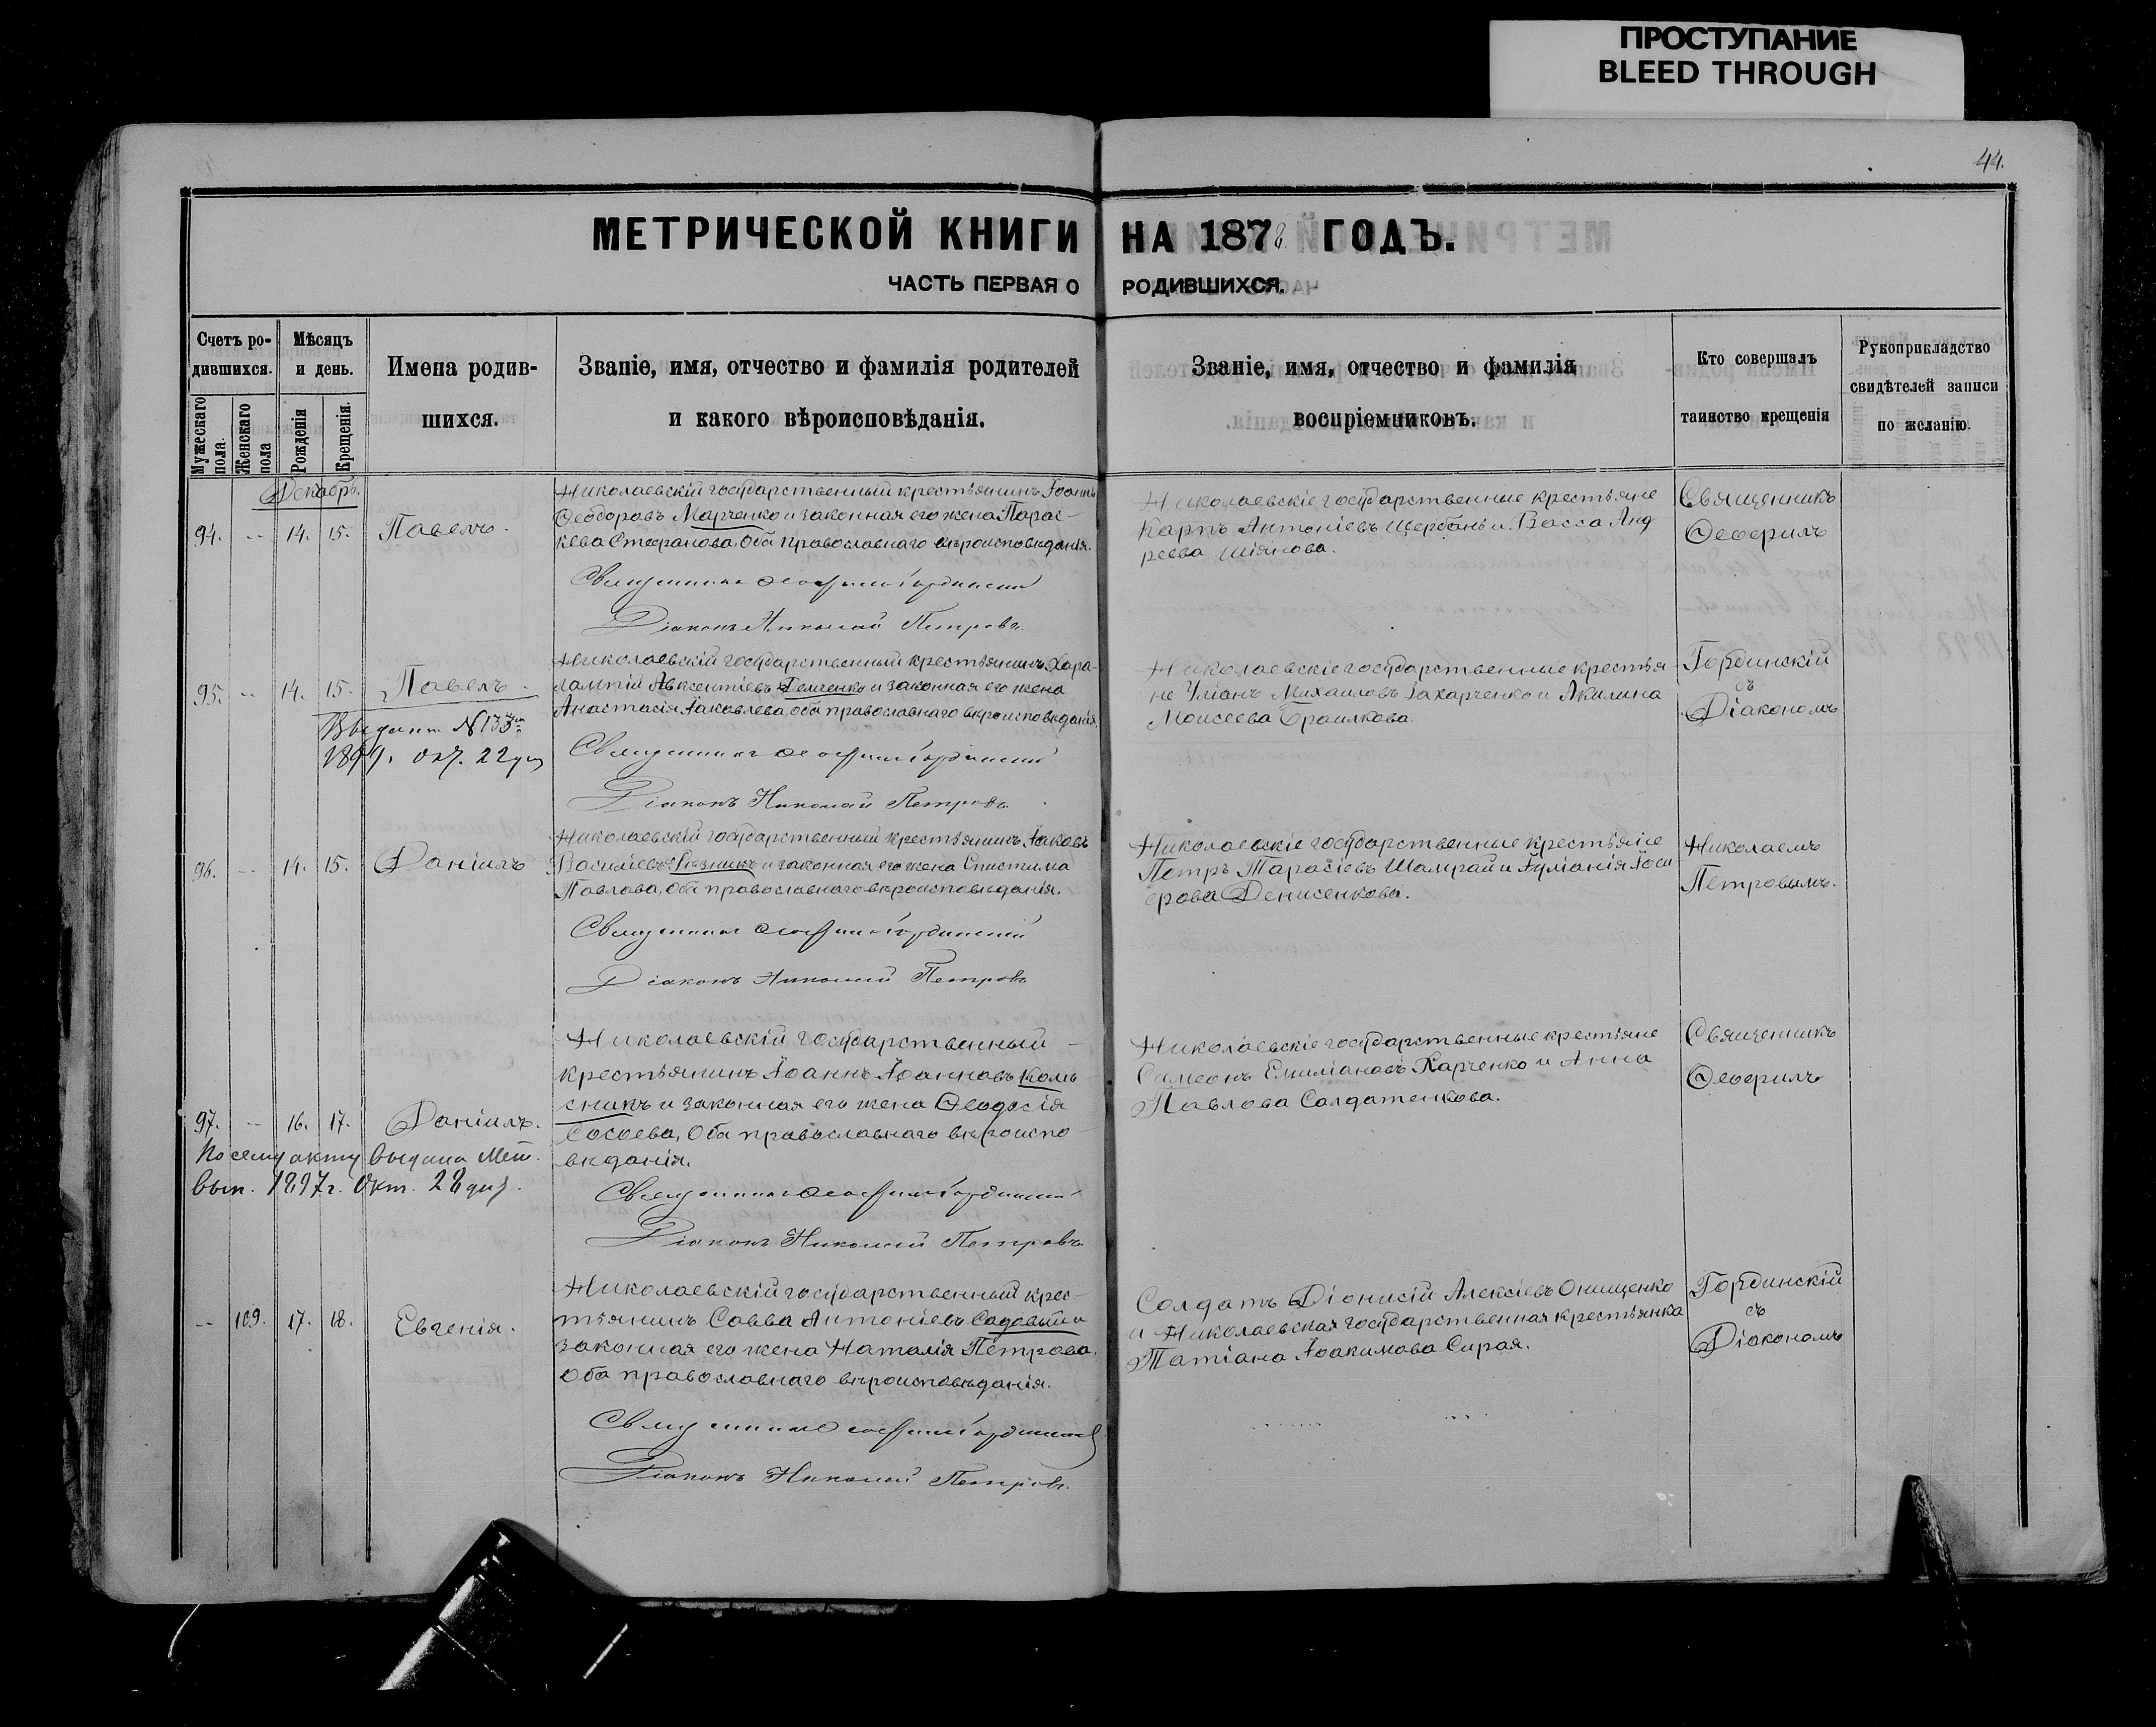 ПРОСТУПАНИЕ
BLEED THROUGH
44.
МЕТРИЧЕСКОЙ КНИГИ НА 1878 ГОДЪ.
ЧАСТЬ ПЕРВАЯ О РОДИВШИХСЯ.
Счетъ ро-
дившихся.
Мужескаго пола.
Женскаго пола
Мѣсяцъ
и день.
Рожденія
Крещенія.
Имена родив-
шихся.
Званіе, имя, отчество и фамилія родителей
и какого вѣроисповѣданія.
Званіе, имя, отчество и фамилія
воспріемниковъ.
Кто совершалъ
таинство крещенія
Рукоприкладство
свидѣтелей записи
по желанію.
Декабрь.
94. -- 14. 15. Павелъ.
Николаевскій государственный крестьянинъ Іоаннъ
Ѳеодоровъ Марченко и законная его жена Парас-
кева Стефанова, оба православнаго вѣроисповѣданія.
Священникъ Ѳеофилъ Гординскій
Діаконъ Николай Петровъ
Николаевскіе государственные крестьяне
Карпъ Антоніевъ Щербань и Васса Анд
реева Шіянова.
Священникъ
Ѳеофилъ
95. -- 14. 15. Павелъ.
Выдан. № 133
Окт. 22 дня
Николаевскій государственный крестьянинъ Хара-
лампій Авксентіевъ Демченко и законная его жена
Анастасія Іаковлева, оба православнаго вѣроисповѣданія.
Священникъ Ѳеофилъ Гординскій
Діаконъ Николай Петровъ
Николаевскіе государственные крестья
не Уліанъ Михаиловъ Захарченко и Акилина
Моисеева Браилкова.
Гординскій
съ
Діакономъ
96. -- 14. 15. Даніилъ
Николаевскій государственный крестьянинъ Іаковъ
Василіевъ Рѣзникъ и законная его жена Епистима
Павлова, оба православнаго вѣроисповѣданія.
Священникъ Ѳеофилъ Гординскій
Діаконъ Николай Петровъ
Николаевскіе государственные крестьяне
Петръ Тарасіевъ Шамрай и Іуліанія Іоси
фова Денисенкова.
Николаемъ
Петровымъ.
97. -- 16. 17. Даніилъ.
По сему акту выдана Мет.
вып. 1897 г. Окт. 28 дня.
Николаевскій государственный
крестьянинъ Іоаннъ Іоанновъ Колѣ
сникъ и законная его жена Ѳеодосія
Сосоева, Оба православнаго вѣроиспо
вѣданія.
Священникъ Ѳеофилъ Гординскій
Діаконъ Николай Петровъ
Николаевскіе государственные крестьяне
Симеонъ Емиліановъ Харченко и Анна
Павлова Солдатенкова.
Священникъ
Ѳеофилъ
-- 109. 17. 18. Евгенія.
Николаевскій государственный крес-
тьянинъ Савва Антоніевъ Садовый и
законная его жена Наталія Петрова,
Оба православнаго вѣроисповѣданія.
Священникъ Ѳеофилъ Гординскій
Діаконъ Николай Петровъ.
Солдатъ Діонисій Алексіевъ Онищенко
и Николаевская государственная крестьянка
Татіана Іоакимова Сирая.
Гординскій
съ
Діакономъ